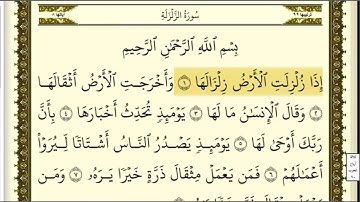 ترتيبها ٩٩ سُورَةُ الزَّلْزَلَةِ آياتها ٨
بِسْمِ ٱللَّهِ ٱلرَّحْمَٰنِ ٱلرَّحِيمِ
إِذَا زُلْزِلَتِ ٱلْأَرْضُ زِلْزَالَهَا ١ وَأَخْرَجَتِ ٱلْأَرْضُ أَثْقَالَهَا
٢ وَقَالَ ٱلْإِنسَٰنُ مَا لَهَا ٣ يَوْمَئِذٍ تُحَدِّثُ أَخْبَارَهَا ٤ بِأَنَّ
رَبَّكَ أَوْحَىٰ لَهَا ٥ يَوْمَئِذٍ يَصْدُرُ ٱلنَّاسُ أَشْتَاتًا لِّيُرَوْا۟
أَعْمَٰلَهُمْ ٦ فَمَن يَعْمَلْ مِثْقَالَ ذَرَّةٍ خَيْرًا يَرَهُۥ ٧ وَمَن